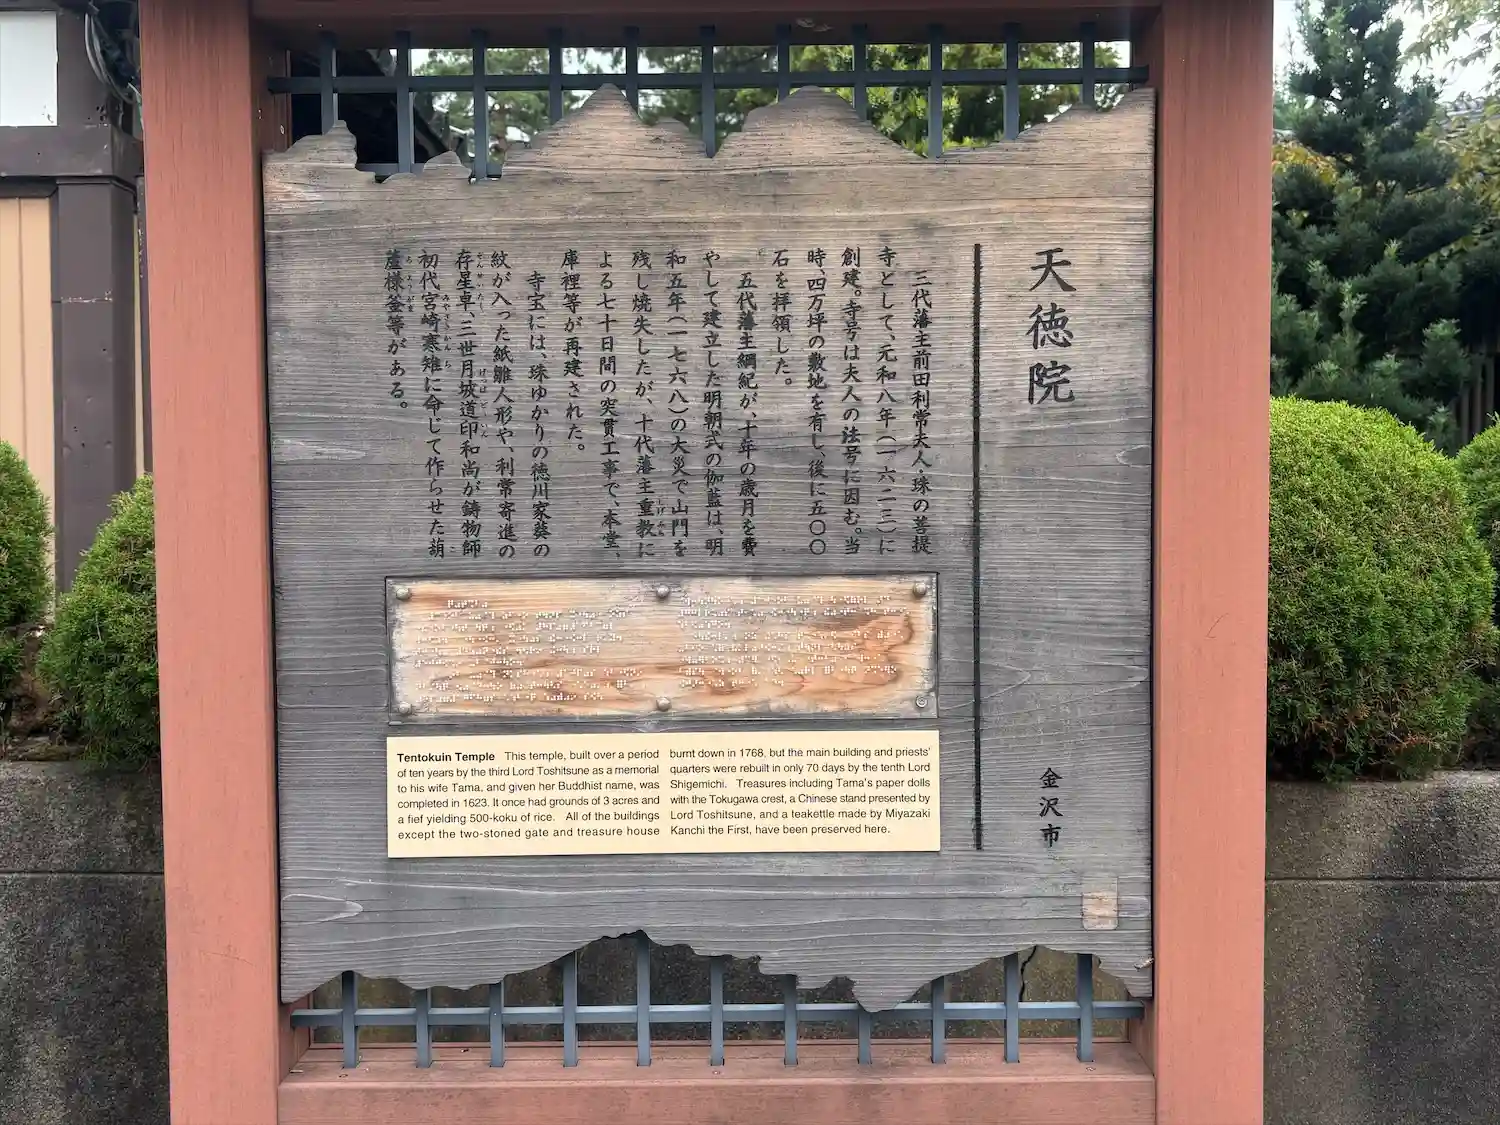 天徳院
三代藩主前田利常夫人・珠の菩提
寺として、元和八年（一六二三）に
創建。寺号は夫人の法号に因む。当
時、四万坪の敷地を有し、後に五〇〇
石を拝領した。
五代藩主綱紀が、十年の歳月を費
やして建立した明朝式の伽藍は、明
和五年（一七六八）の大災で山門を
残し焼失したが、十代藩主重教に
よる七十日間の突貫工事で、本堂、
庫裡等が再建された。
寺宝には、珠ゆかりの徳川家葵の
紋が入った紙雛人形や、利常寄進の
存星卓、三世月坡道印和尚が鋳物師
初代宮崎寒雉に命じて作らせた葫
蘆様釜等がある。
金沢市
Tentokuin Temple This temple, built over a period
of ten years by the third Lord Toshitsune as a memorial
to his wife Tama, and given her Buddhist name, was
completed in 1623. It once had grounds of 3 acres and
a fief yielding 500-koku of rice. All of the buildings
except the two-stoned gate and treasure house
burnt down in 1768, but the main building and priests'
quarters were rebuilt in only 70 days by the tenth Lord
Shigemichi. Treasures including Tama's paper dolls
with the Tokugawa crest, a Chinese stand presented by
Lord Toshitsune, and a teakettle made by Miyazaki
Kanchi the First, have been preserved here.